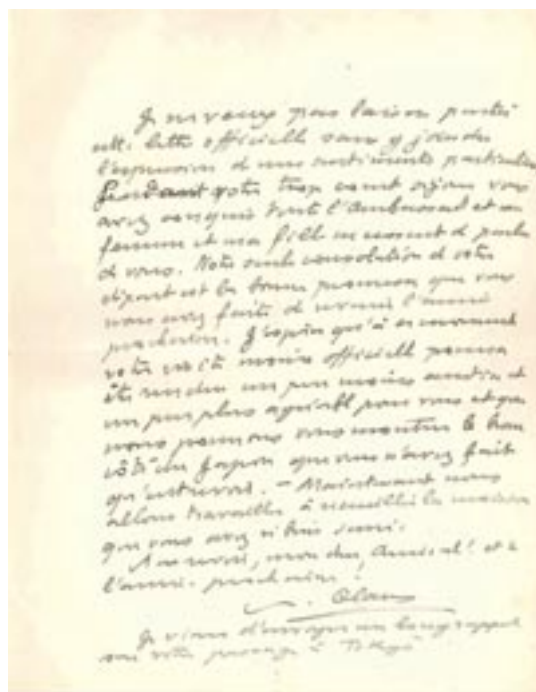 Je ne veux pas laisser partir
cette lettre officielle sans y joindre
l'expression de mes sentiments particuliers
Pendant votre trop court séjour vous
avez conquis toute l'Ambassade et ma
femme et ma fille ne cessent de parler
de vous. Notre seule consolation de votre
départ est la bonne promesse que vous
nous avez faite de revenir l'année
prochaine. J'espère qu'à ce moment
votre visite moins officielle pourra
être rendue un peu moins et
un peu plus agréable pour vous et que
nous pourrons vous montrer le bon
côté du Japon que vous n'avez fait
qu'entrevoir. – Maintenant nous
allons travailler à la maison
que vous avez si bien
Au revoir, mon cher Amiral! et à
l'année prochaine!
Je viens d'envoyer un long rapport
sur votre passage à Tokyo